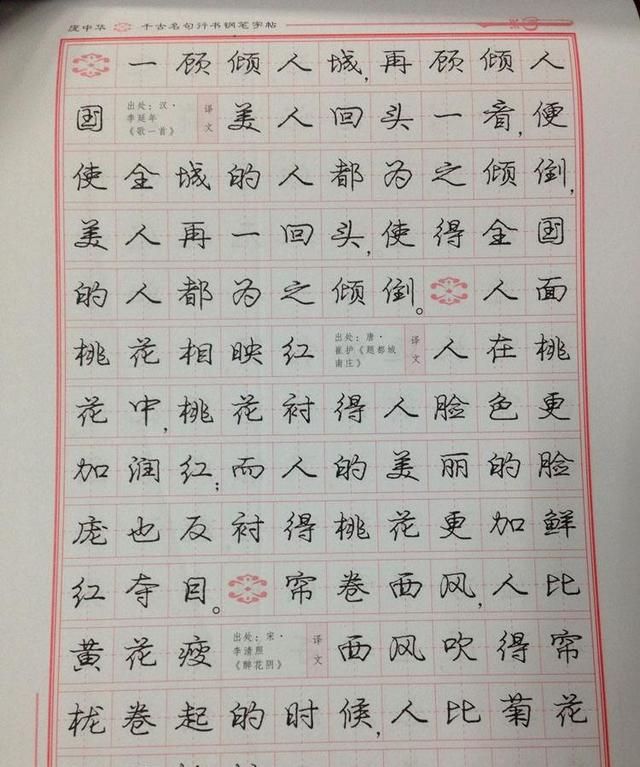 庞中华 千古名句行书钢笔字帖
一顾倾人城,再顾倾人
国 出处:汉·李延年《歌一首》 译文 美人回头一音,便
使全城的人都为之倾倒,
美人再一回头,使得全国
的人都为之倾倒。 人面
桃花相映红 出处:唐·崔护《题都城南庄》 译文 人在桃
花中,桃花衬得人脸色更
加润红;而人的美丽的脸
庞也反衬得桃花更加鲜
红夺目。 帘卷西风,人比
黄花瘦 出处:宋·李清照《醉花阴》 译文 西风吹得帘
栊卷起的时候,人比菊花